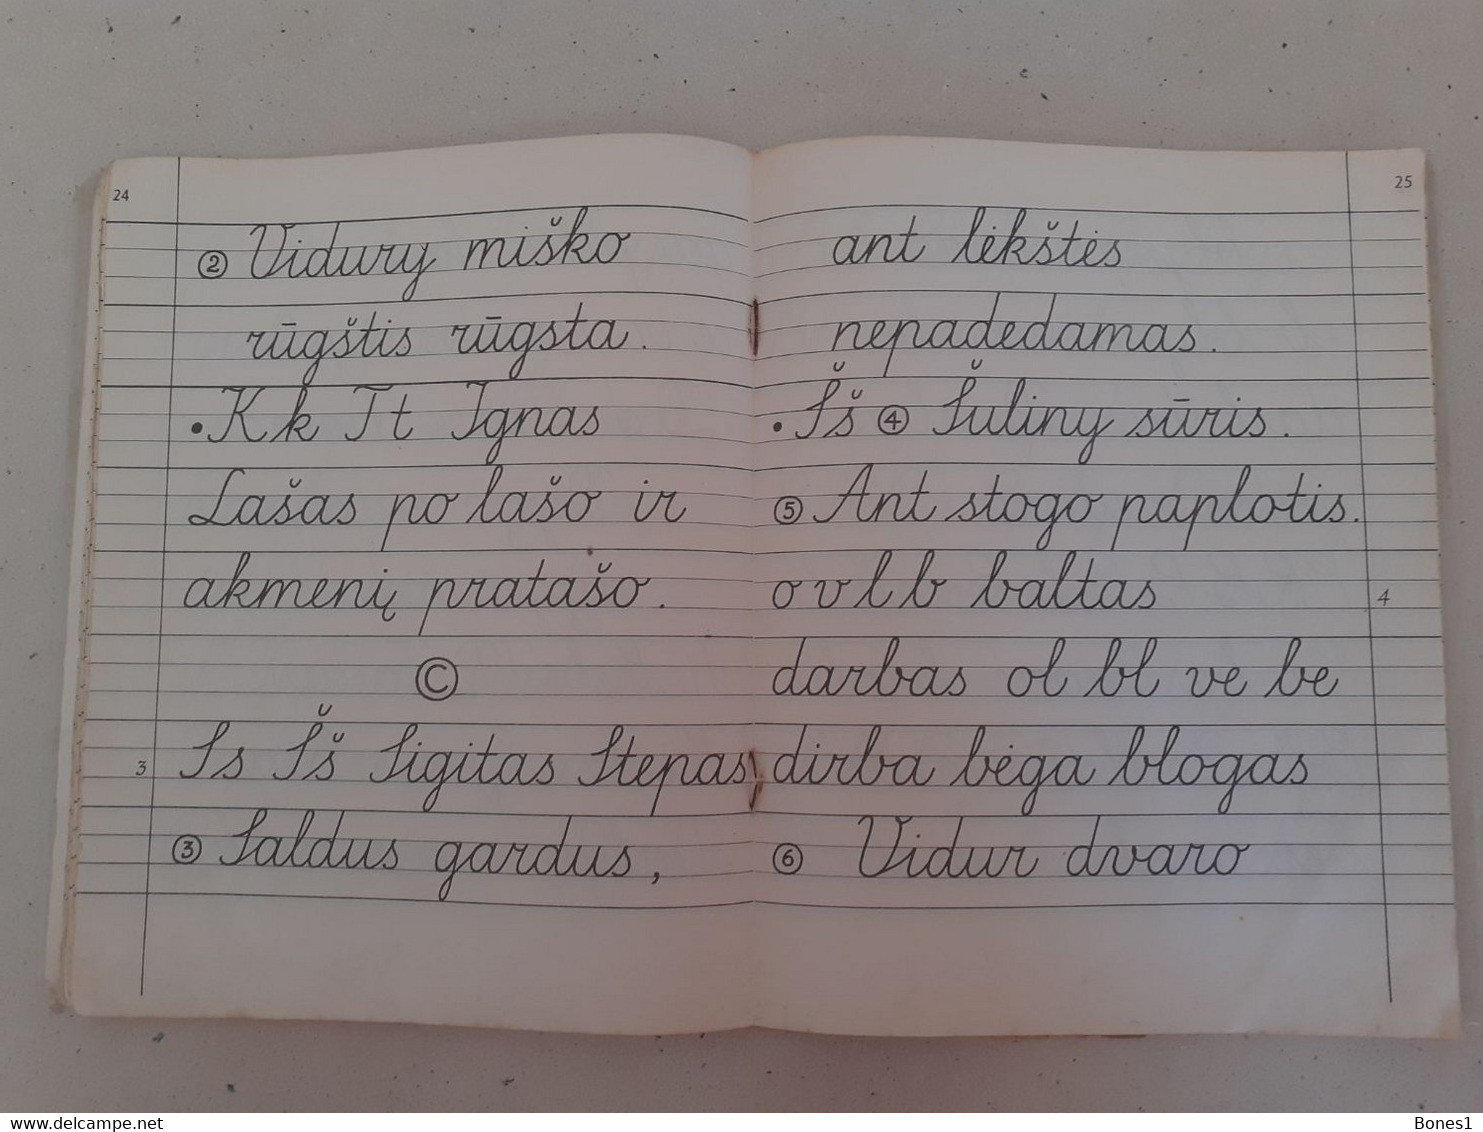 24
② Vidury miško
rūgštis rūgsta.
• K k T t Ignas
Lašas po lašo ir
akmenį pratašo.
©
3 S s Š š Sigitas Stepas
③ Saldus gardus,
25
ant lėkštės
nepadedamas.
• Š š ④ Šuliny sūris.
⑤ Ant stogo paplotis.
o v l b baltas 4
darbas ol bl ve be
dirba bėga blogas
⑥ Vidur dvaro
www.delcampe.net
Bones1